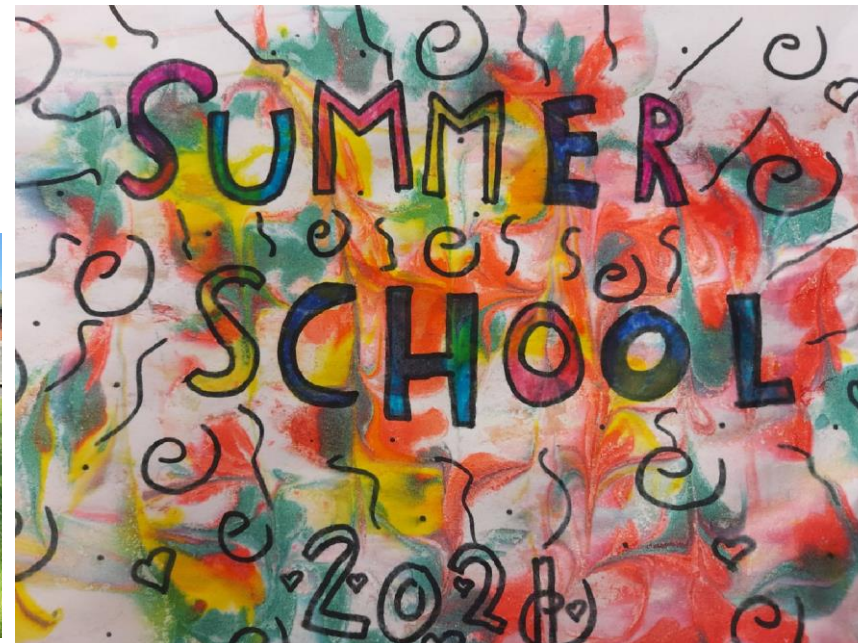 SUMMER
SCHOOL
2021